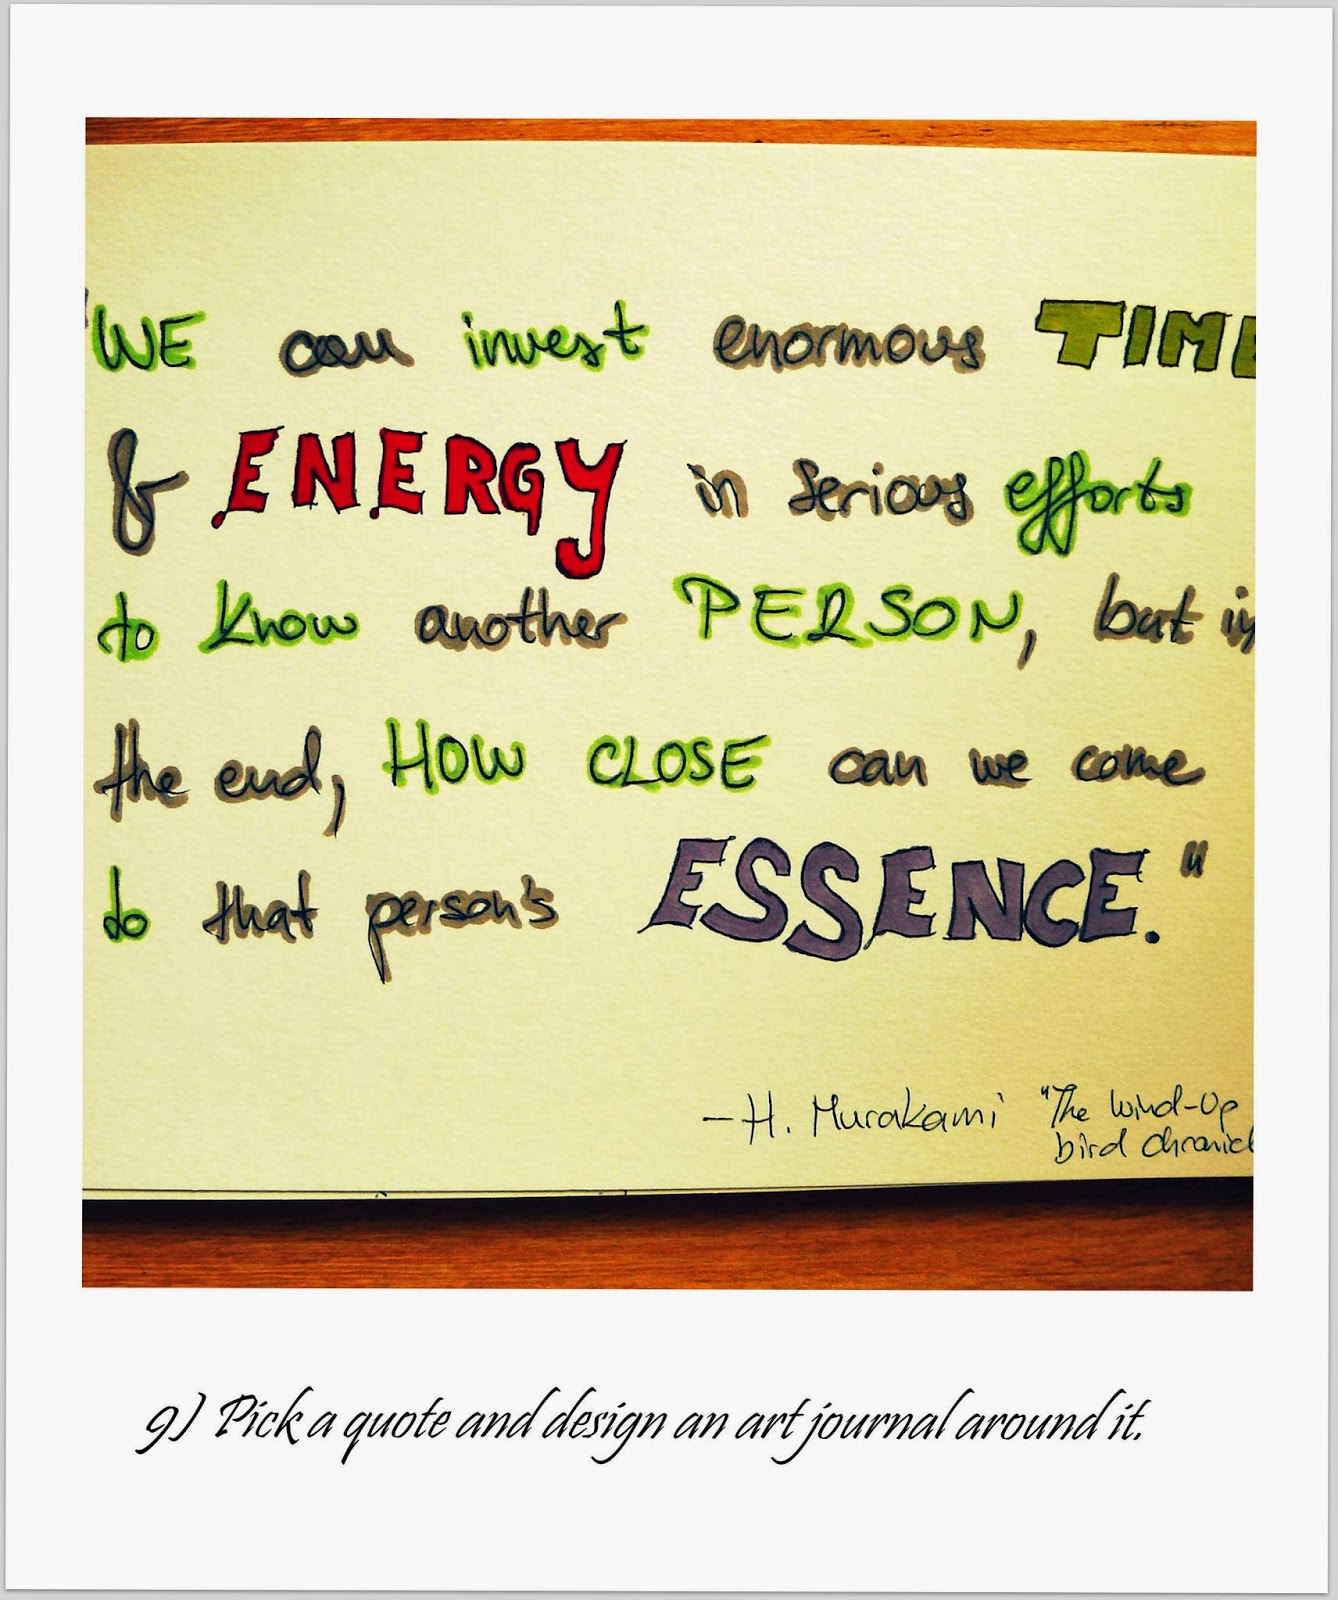 "WE can invest enormous TIME
& ENERGY in serious efforts
to know another PERSON, but in
the end, HOW CLOSE can we come
to that person's ESSENCE."
– H. Murakami "The Wind-Up
bird Chronicl
9) Pick a quote and design an art journal around it.